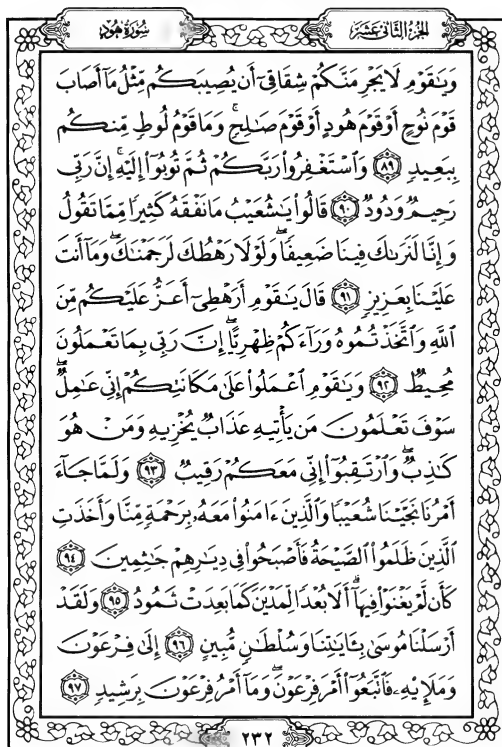 سُورَةُ هُودٍ الجُزْءُ الثَّانِي عَشَرَ
وَيَٰقَوْمِ لَا يَجْرِمَنَّكُمْ شِقَاقِىٓ أَن يُصِيبَكُم مِّثْلُ مَآ أَصَابَ
قَوْمَ نُوحٍ أَوْ قَوْمَ هُودٍ أَوْ قَوْمَ صَٰلِحٍۚ وَمَا قَوْمُ لُوطٍ مِّنكُم
بِبَعِيدٍ ٨٩ وَٱسْتَغْفِرُوا۟ رَبَّكُمْ ثُمَّ تُوبُوٓا۟ إِلَيْهِۚ إِنَّ رَبِّى
رَحِيمٌ وَدُودٌ ٩٠ قَالُوا۟ يَٰشُعَيْبُ مَا نَفْقَهُ كَثِيرًا مِّمَّا تَقُولُ
وَإِنَّا لَنَرَىٰكَ فِينَا ضَعِيفًاۖ وَلَوْلَا رَهْطُكَ لَرَجَمْنَٰكَۖ وَمَآ أَنتَ
عَلَيْنَا بِعَزِيزٍ ٩١ قَالَ يَٰقَوْمِ أَرَهْطِىٓ أَعَزُّ عَلَيْكُم مِّنَ
ٱللَّهِ وَٱتَّخَذْتُمُوهُ وَرَآءَكُمْ ظِهْرِيًّاۖ إِنَّ رَبِّى بِمَا تَعْمَلُونَ
مُحِيطٌ ٩٢ وَيَٰقَوْمِ ٱعْمَلُوا۟ عَلَىٰ مَكَانَتِكُمْ إِنِّى عَٰمِلٌۖ
سَوْفَ تَعْلَمُونَ مَن يَأْتِيهِ عَذَابٌ يُخْزِيهِ وَمَنْ هُوَ
كَٰذِبٌۖ وَٱرْتَقِبُوٓا۟ إِنِّى مَعَكُمْ رَقِيبٌ ٩٣ وَلَمَّا جَآءَ
أَمْرُنَا نَجَّيْنَا شُعَيْبًا وَٱلَّذِينَ ءَامَنُوا۟ مَعَهُۥ بِرَحْمَةٍ مِّنَّا وَأَخَذَتِ
ٱلَّذِينَ ظَلَمُوا۟ ٱلصَّيْحَةُ فَأَصْبَحُوا۟ فِى دِيَٰرِهِمْ جَٰثِمِينَ ٩٤
كَأَن لَّمْ يَغْنَوْا۟ فِيهَآۗ أَلَا بُعْدًا لِّمَدْيَنَ كَمَا بَعِدَتْ ثَمُودُ ٩٥ وَلَقَدْ
أَرْسَلْنَا مُوسَىٰ بِـَٔايَٰتِنَا وَسُلْطَٰنٍ مُّبِينٍ ٩٦ إِلَىٰ فِرْعَوْنَ
وَمَلَإِي۟هِۦ فَٱتَّبَعُوٓا۟ أَمْرَ فِرْعَوْنَۖ وَمَآ أَمْرُ فِرْعَوْنَ بِرَشِيدٍ ٩٧
٢٣٢